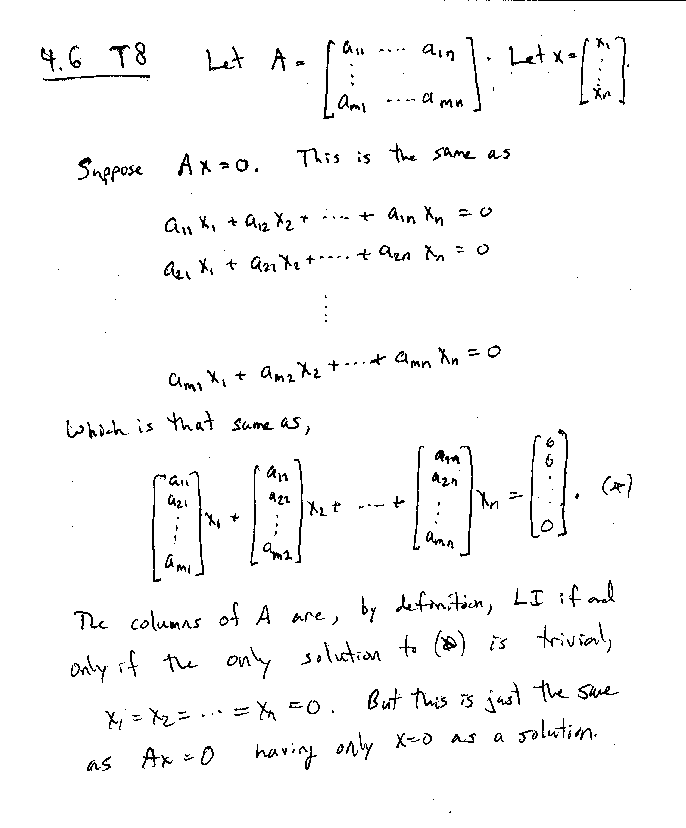 4.6 T8 Let A = [ a₁₁ .... a₁ₙ ⋮ aₘ₁ ....aₘₙ ]. Let x = [ x₁ ⋮ xₙ ].
Suppose Ax = 0. This is the same as
a₁₁ x₁ + a₁₂ x₂ + .... + a₁ₙ xₙ = 0
a₂₁ x₁ + a₂₂ x₂ + .... + a₂ₙ xₙ = 0
⋮
aₘ₁ x₁ + aₘ₂ x₂ + .... + aₘₙ xₙ = 0
Which is that same as,
[ a₁₁ a₂₁ ⋮ aₘ₁ ] x₁ + [ a₁₂ a₂₂ ⋮ aₘ₂ ] x₂ + .... + [ a₁ₙ a₂ₙ ⋮ aₘₙ ] xₙ = [ 0 0 ⋮ 0 ]. (*)
The columns of A are, by definition, LI if and
only if the only solution to (*) is trivial,
x₁ = x₂ = ... = xₙ = 0. But this is just the same
as Ax = 0 having only x=0 as a solution.